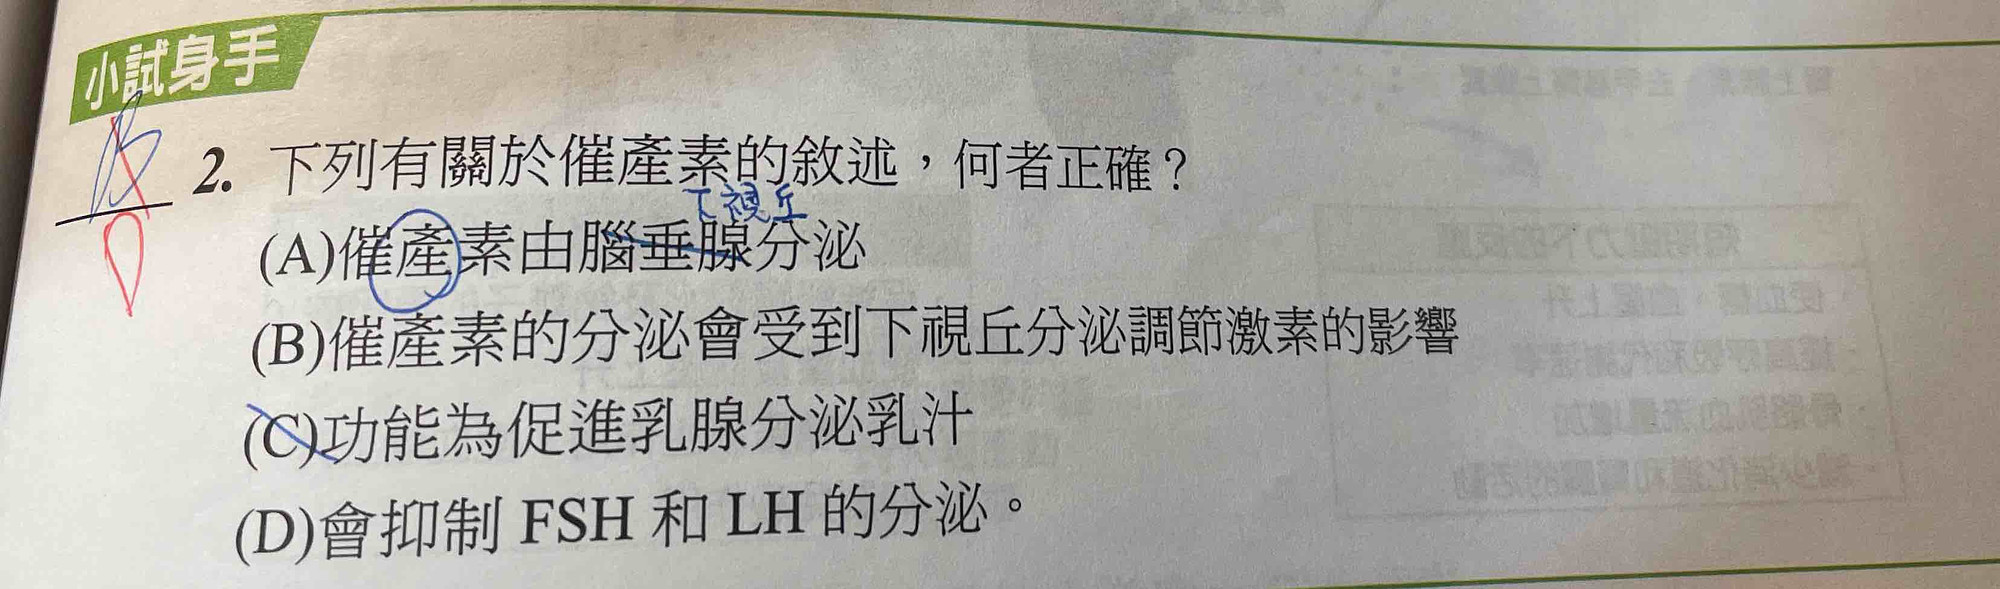 小試身手
B
D
2. 下列有關於催產素的敘述，何者正確？
下視丘
(A)催產素由腦垂腺分泌
(B)催產素的分泌會受到下視丘分泌調節激素的影響
(C)功能為促進乳腺分泌乳汁
(D)會抑制 FSH 和 LH 的分泌。